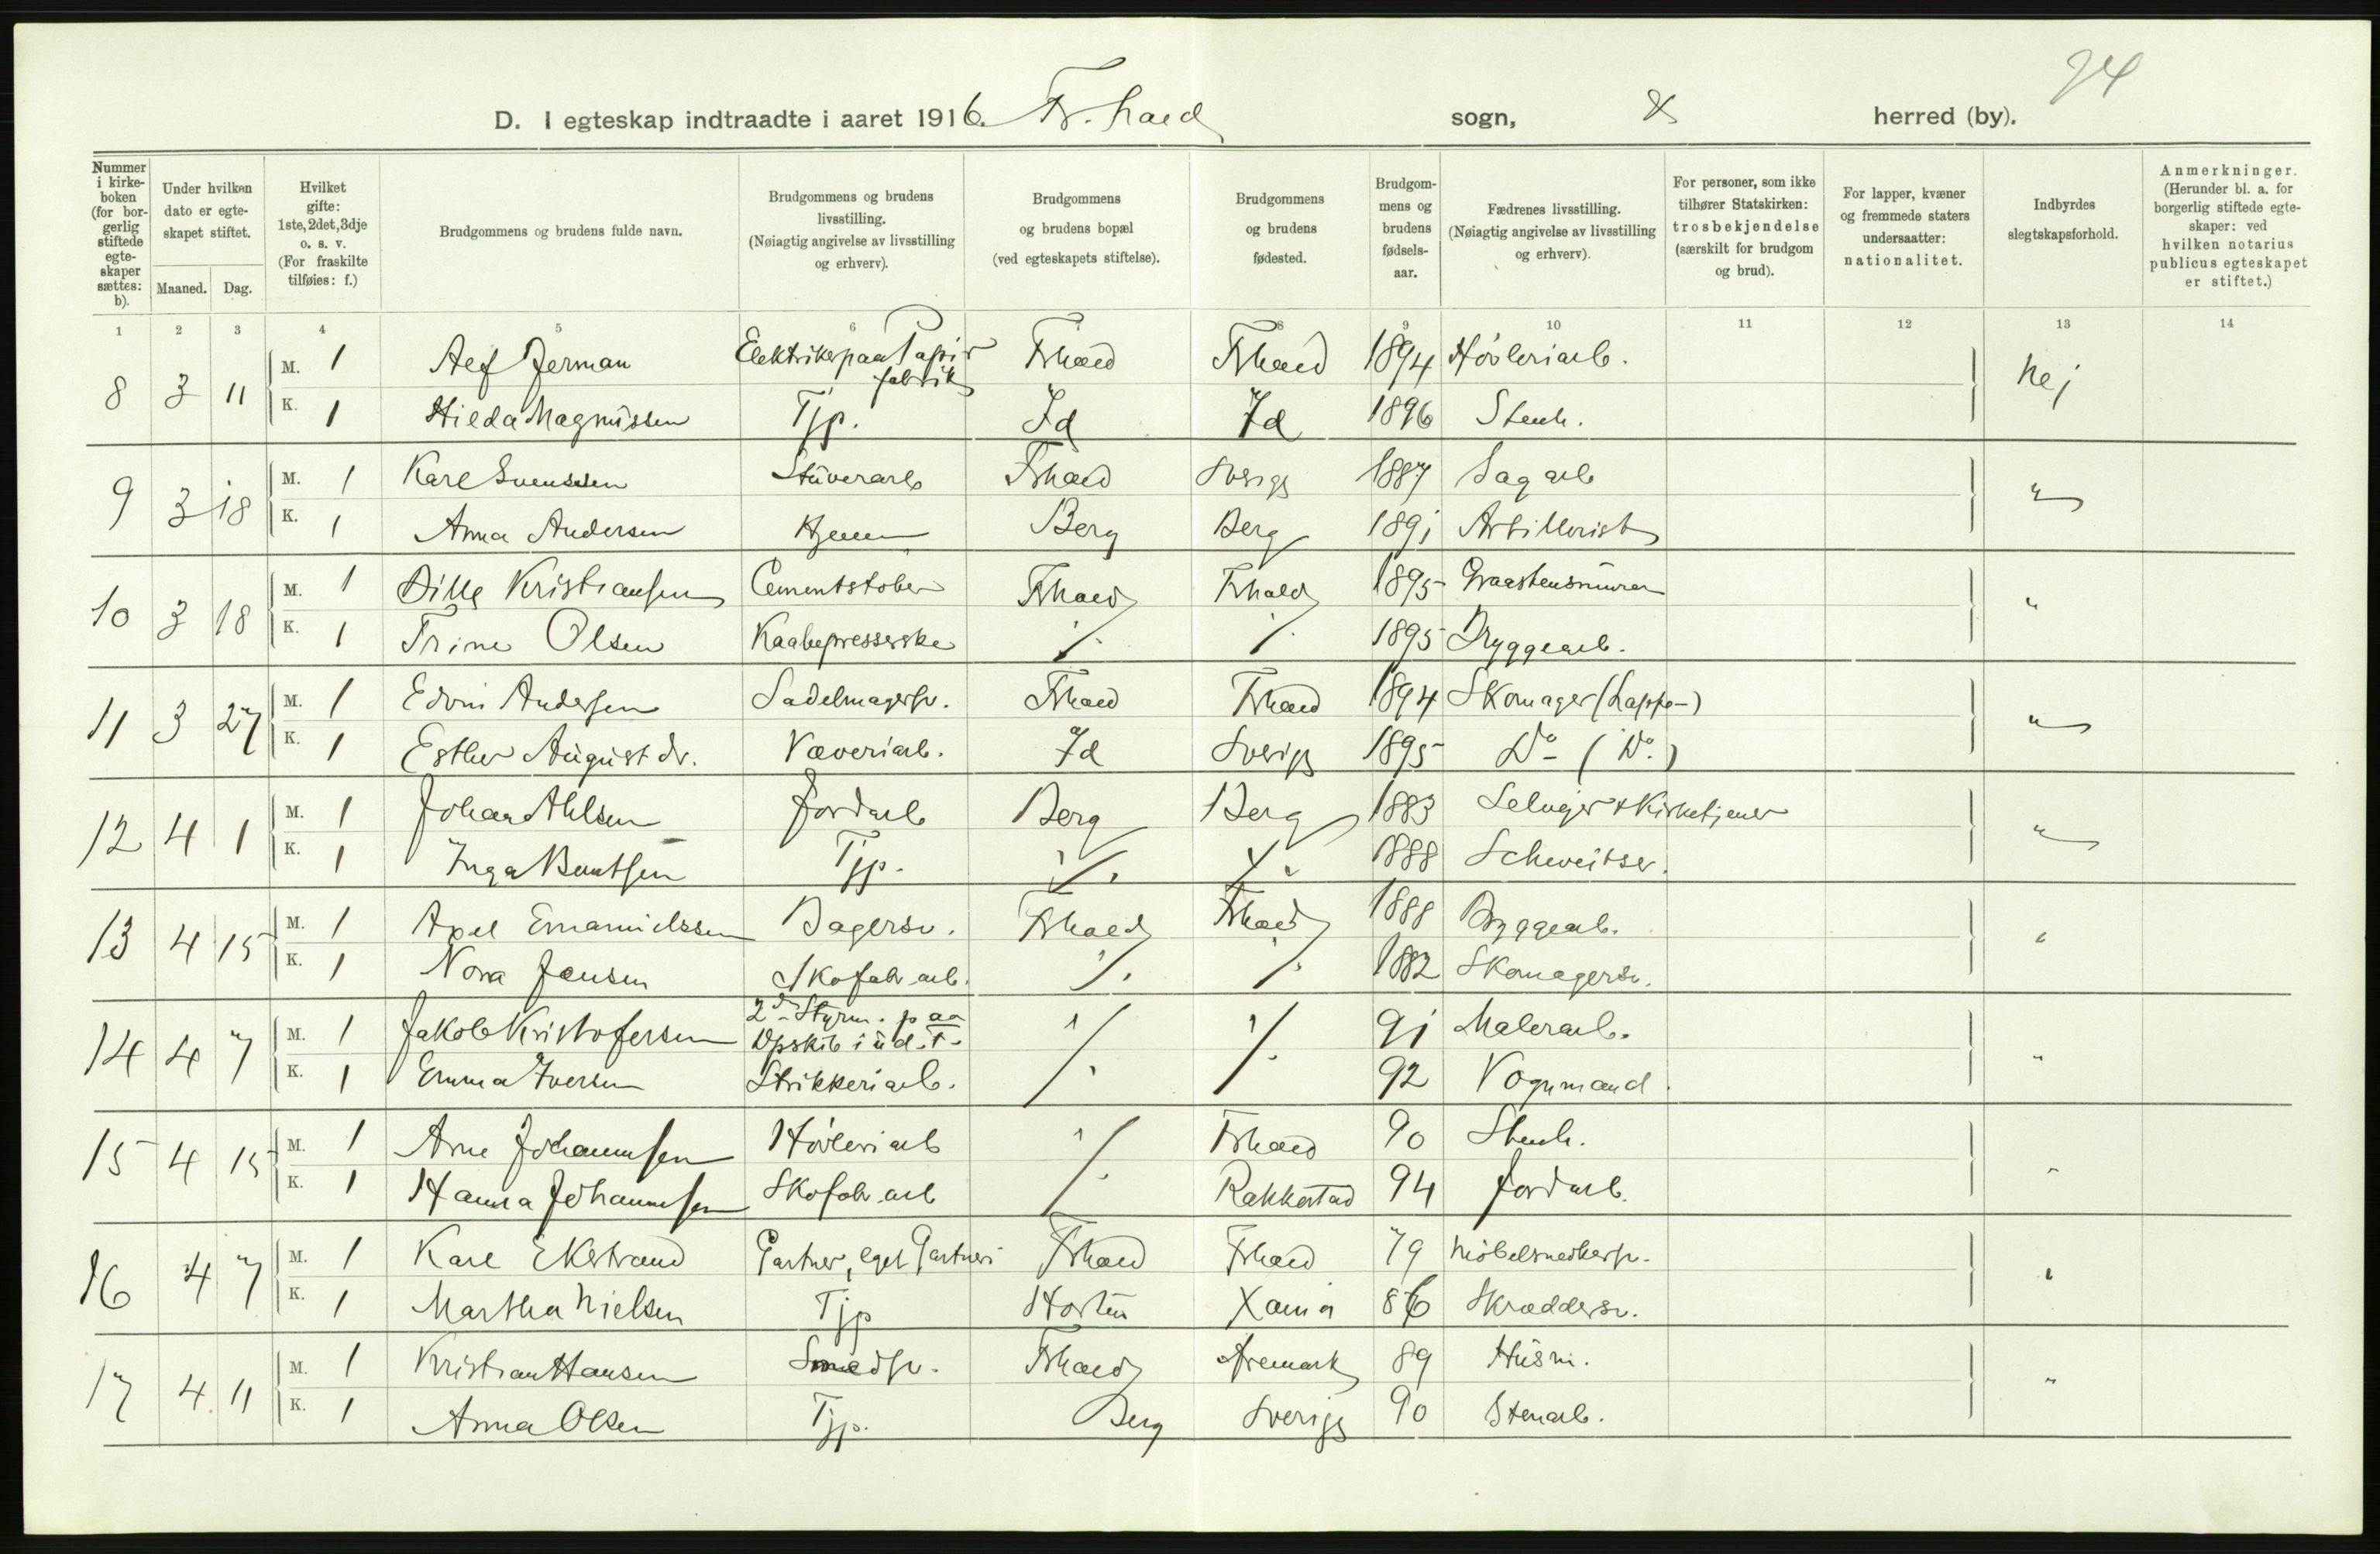 24
D. I egteskap indtraadte i aaret 1916. Fr.hald sogn, herred (by).
Nummer i kirkeboken (for borgerlig stiftede egteskaper sættes: b).
Under hvilken dato er egteskapet stiftet.
Maaned. Dag.
Hvilket gifte: 1ste, 2det, 3dje o. s. v. (For fraskilte tilføies: f.)
Brudgommens og brudens fulde navn.
Brudgommens og brudens livsstilling. (Nøiagtig angivelse av livsstilling og erhverv).
Brudgommens og brudens bopæl (ved egteskapets stiftelse).
Brudgommens og brudens fødested.
Brudgommens og brudens fødselsaar.
Fædrenes livsstilling. (Nøiagtig angivelse av livsstilling og erhverv).
For personer, som ikke tilhører Statskirken: trosbekjendelse (særskilt for brudgom og brud).
For lapper, kvæner og fremmede staters undersaatter: nationalitet.
Indbyrdes slegtskapsforhold.
Anmerkninger. (Herunder bl. a. for borgerlig stiftede egteskaper: ved hvilken notarius publicus egteskapet er stiftet.)
1 2 3 4 5 6 7 8 9 10 11 12 13 14
8 3 11 M. 1 Alf Jerman Elektriker paa Papirfabrik Frhald Frhald 1894 Høvleriarb. Nej
K. 1 Hilda Magnussen Tjp. Id Id 1896 Stenh.
9 3 18 M. 1 Karl Svenssen Stuverarb Frhald Sverige 1887 Sagarb "
K. 1 Anna Andersen Hjemme Berg Berg 1891 Artillerist
10 3 18 M. 1 Kristiansen Cementstøber Frhald Frhald 1895 Graastensmurer "
K. 1 Trine Olsen Kaabepresserske ./. ./. 1895 Bryggearb.
11 3 27 M. 1 Edvin Andersen Sadelmagersv. Frhald Frhald 1894 Skomager (Lappe-) "
K. 1 Esther August dr. Væveriarb. Id Sverige 1895 Do - (Do.)
12 4 1 M. 1 Johan Ahlsen Jordarb Berg Berg 1883 Selveier & Kirketjener "
K. 1 Inga Berntsen Tjp. ./. ./. 1888 Schweitser.
13 4 15 M. 1 Axel Emanuelssen Bagersv. Frhald Frhald 1888 Bryggearb. "
K. 1 Nora Jensen Skofabr.arb. ./. ./. 1882 Skomagersv.
14 4 7 M. 1 Jakob Kristofersen 2den Styrm. paa Dpskib i ud.f. ./. ./. 91 Malerarb. "
K. 1 Emma Iversen Strikkeriarb. 92 Vognmand.
15 4 15 M. 1 Arne Johannesen Høvleriarb ./. Frhald 90 Stenh. "
K. 1 Hanna Johannesen Skofabr.arb Rakkestad 94 Jordarb.
16 4 7 M. 1 Karl Ekstrand Gartner, eget Gartneri Frhald Frhald 79 Møbelsnedkersv. "
K. 1 Martha Nielsen Tjp Horten Xania 86 Skræddersv.
17 4 11 M. 1 Kristian Hansen Smedsv. Frhald Aremark 89 Husm. "
K. 1 Anna Olsen Tjp. Berg Sverige 90 Stenarb.